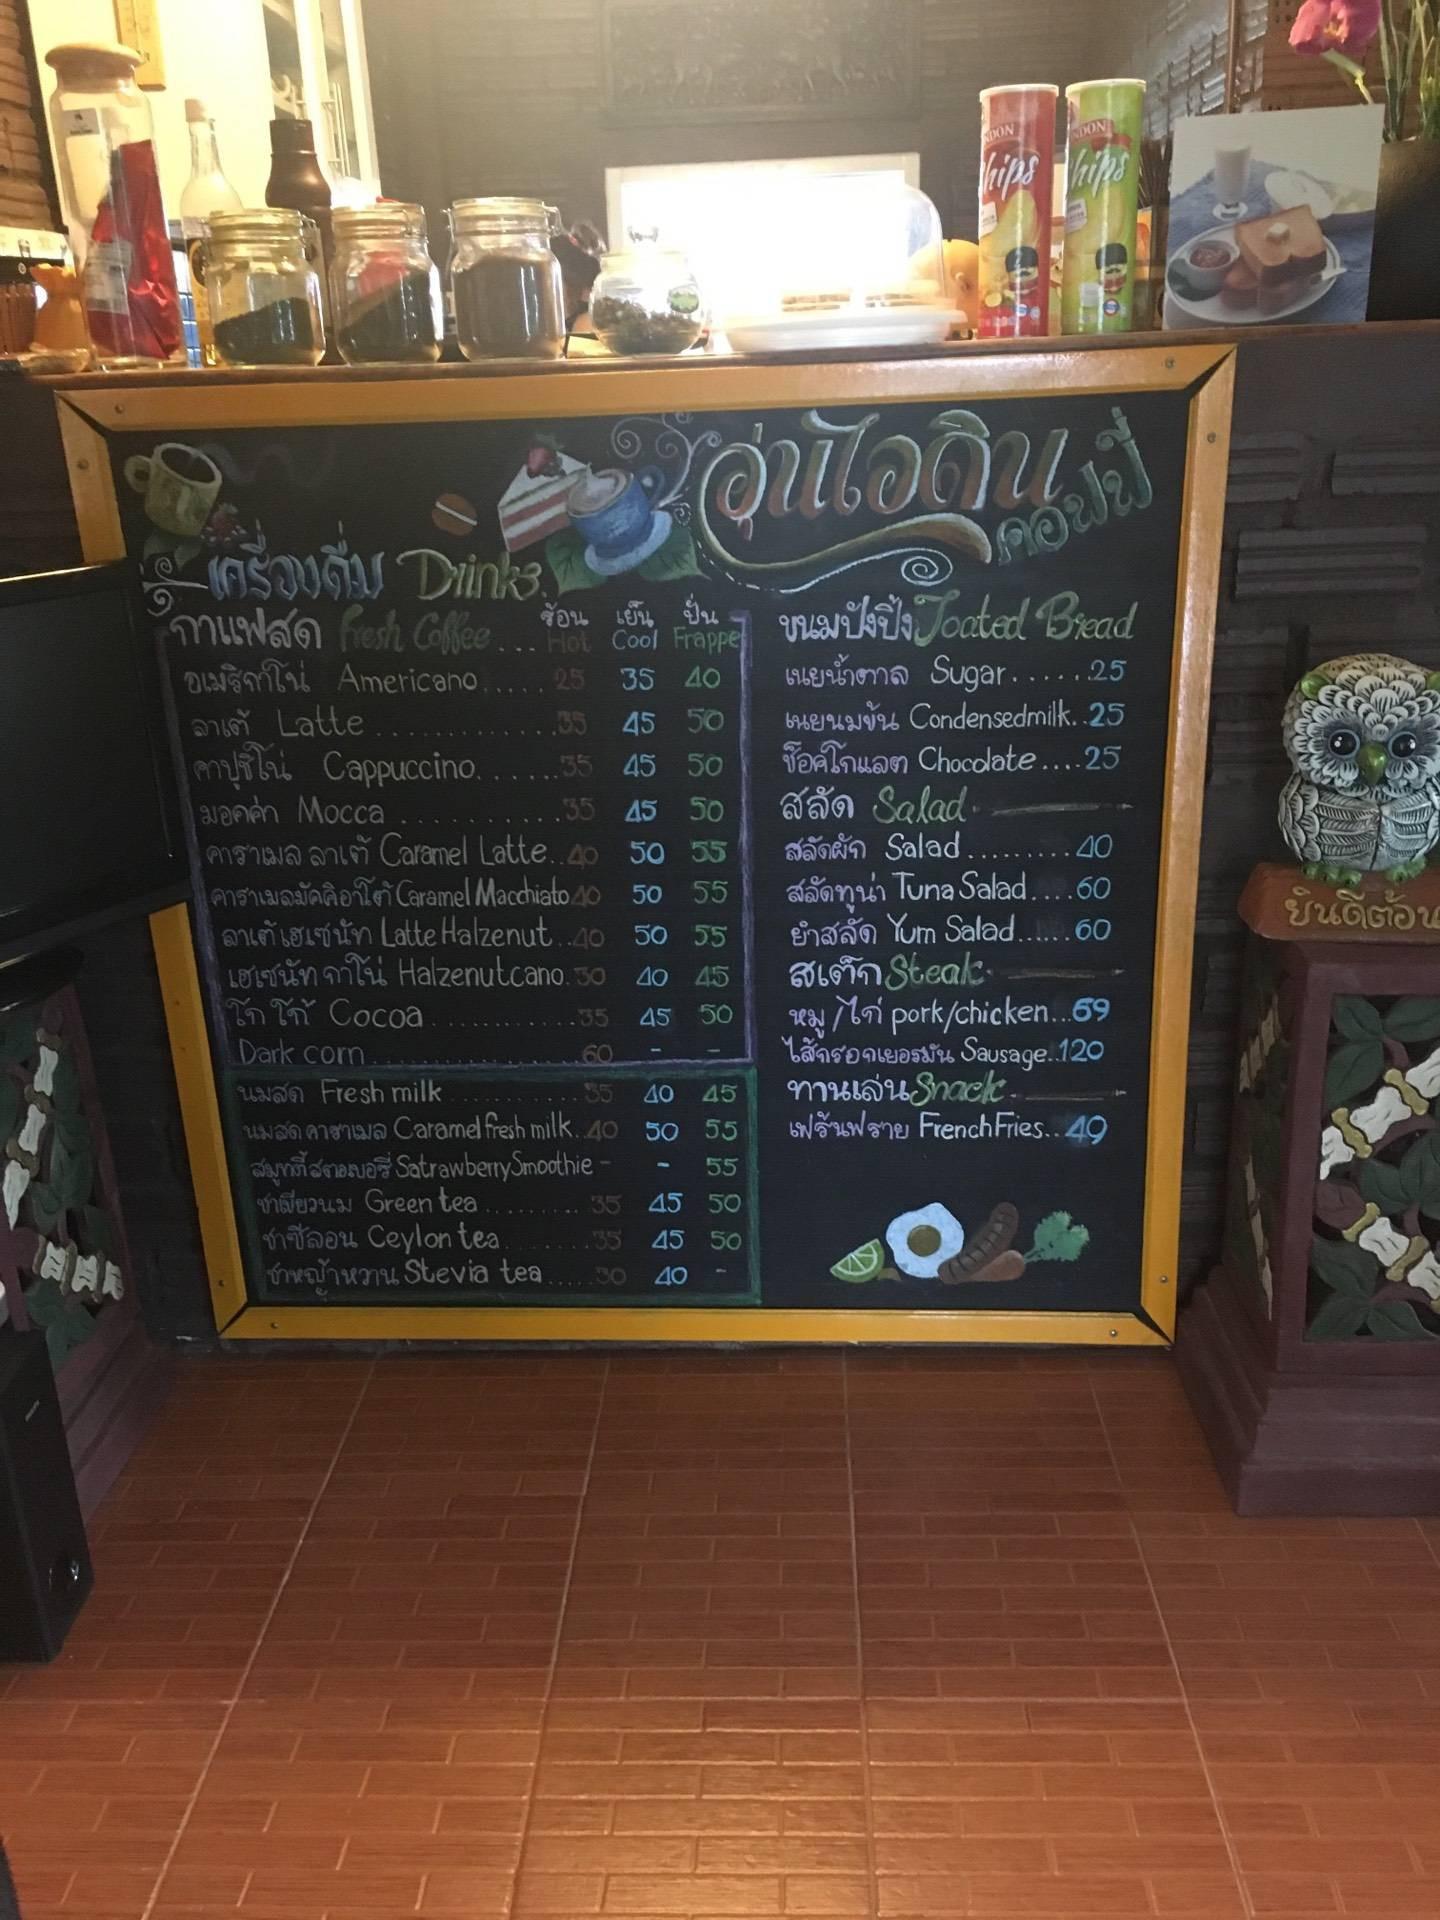 อุ่นไอดิน
คอฟฟี่
เครื่องดื่ม Drinks.
กาแฟสด Fresh Coffee... ร้อน Hot เย็น Cool ปั่น Frappe
อเมริกาโน่ Americano..... 25 35 40
ลาเต้ Latte .............35 45 50
คาปูชิโน่ Cappuccino.......35 45 50
มอคค่า Mocca ...........35 45 50
คาราเมล ลาเต้ Caramel Latte..40 50 55
คาราเมลมัคคิอาโต้ Caramel Macchiato 40 50 55
ลาเต้ เฮเซนัท Latte Halzenut..40 50 55
เฮเซนัท กาโน่ Halzenutcano.30 40 45
โก โก้ Cocoa ............35 45 50
Dark corn ................60 - -
นมสด Fresh milk ..........35 40 45
นมสด คาราเมล Caramel fresh milk..40 50 55
สมูทตี้ สตอเบอรี่ Satrawberry Smoothie - - 55
ชาเขียวนม Green tea .........35 45 50
ชาซีลอน Ceylon tea........35 45 50
ชาหญ้าหวาน Stevia tea.....30 40 -
ขนมปังปิ้ง Toated Bread
เนยน้ำตาล Sugar......25
เนยนมข้น Condensedmilk..25
ช็อคโกแลต Chocolate....25
สลัด Salad
สลัดผัก Salad.........40
สลัดทูน่า Tuna Salad....60
ยำสลัด Yum Salad......60
สเต็ก Steak
หมู/ไก่ pork/chicken...69
ไส้กรอกเยอรมัน Sausage..120
ทานเล่น Snack
เฟร้นฟราย French Fries..49
NDON
hips
NDON
hips
ยินดีต้อน